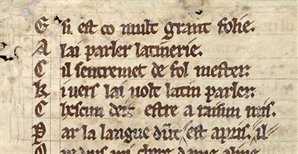 E li est co mult grant folie.
A lai parler latinerie.
C il sentremet de fol mester.
K i vers lai uolt latin parler.
C hescun deit estre a raisun mis.
P ar la langue dunt est apris. il